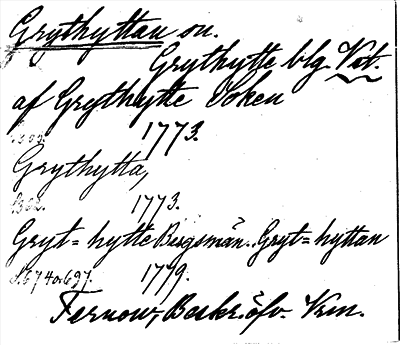 Grythyttan sn.
Grythytte blg. Vst.
af Grythytte Soken
1773.
Grythytta,
1773.
Gryt=hytte Bergsmän. Gryt=hyttan
s. 674 o. 697. 1779.
Fernow, Beskr. öfv. Vrm.